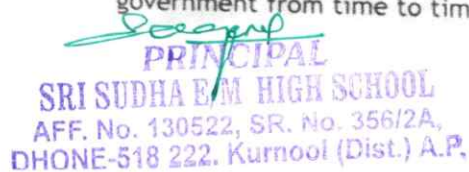 government from time to tim
PRINCIPAL
SRI SUDHA E/M HIGH SCHOOL
AFF. No. 130522, SR. No. 356/2A,
DHONE-518 222. Kurnool (Dist.) A.P.